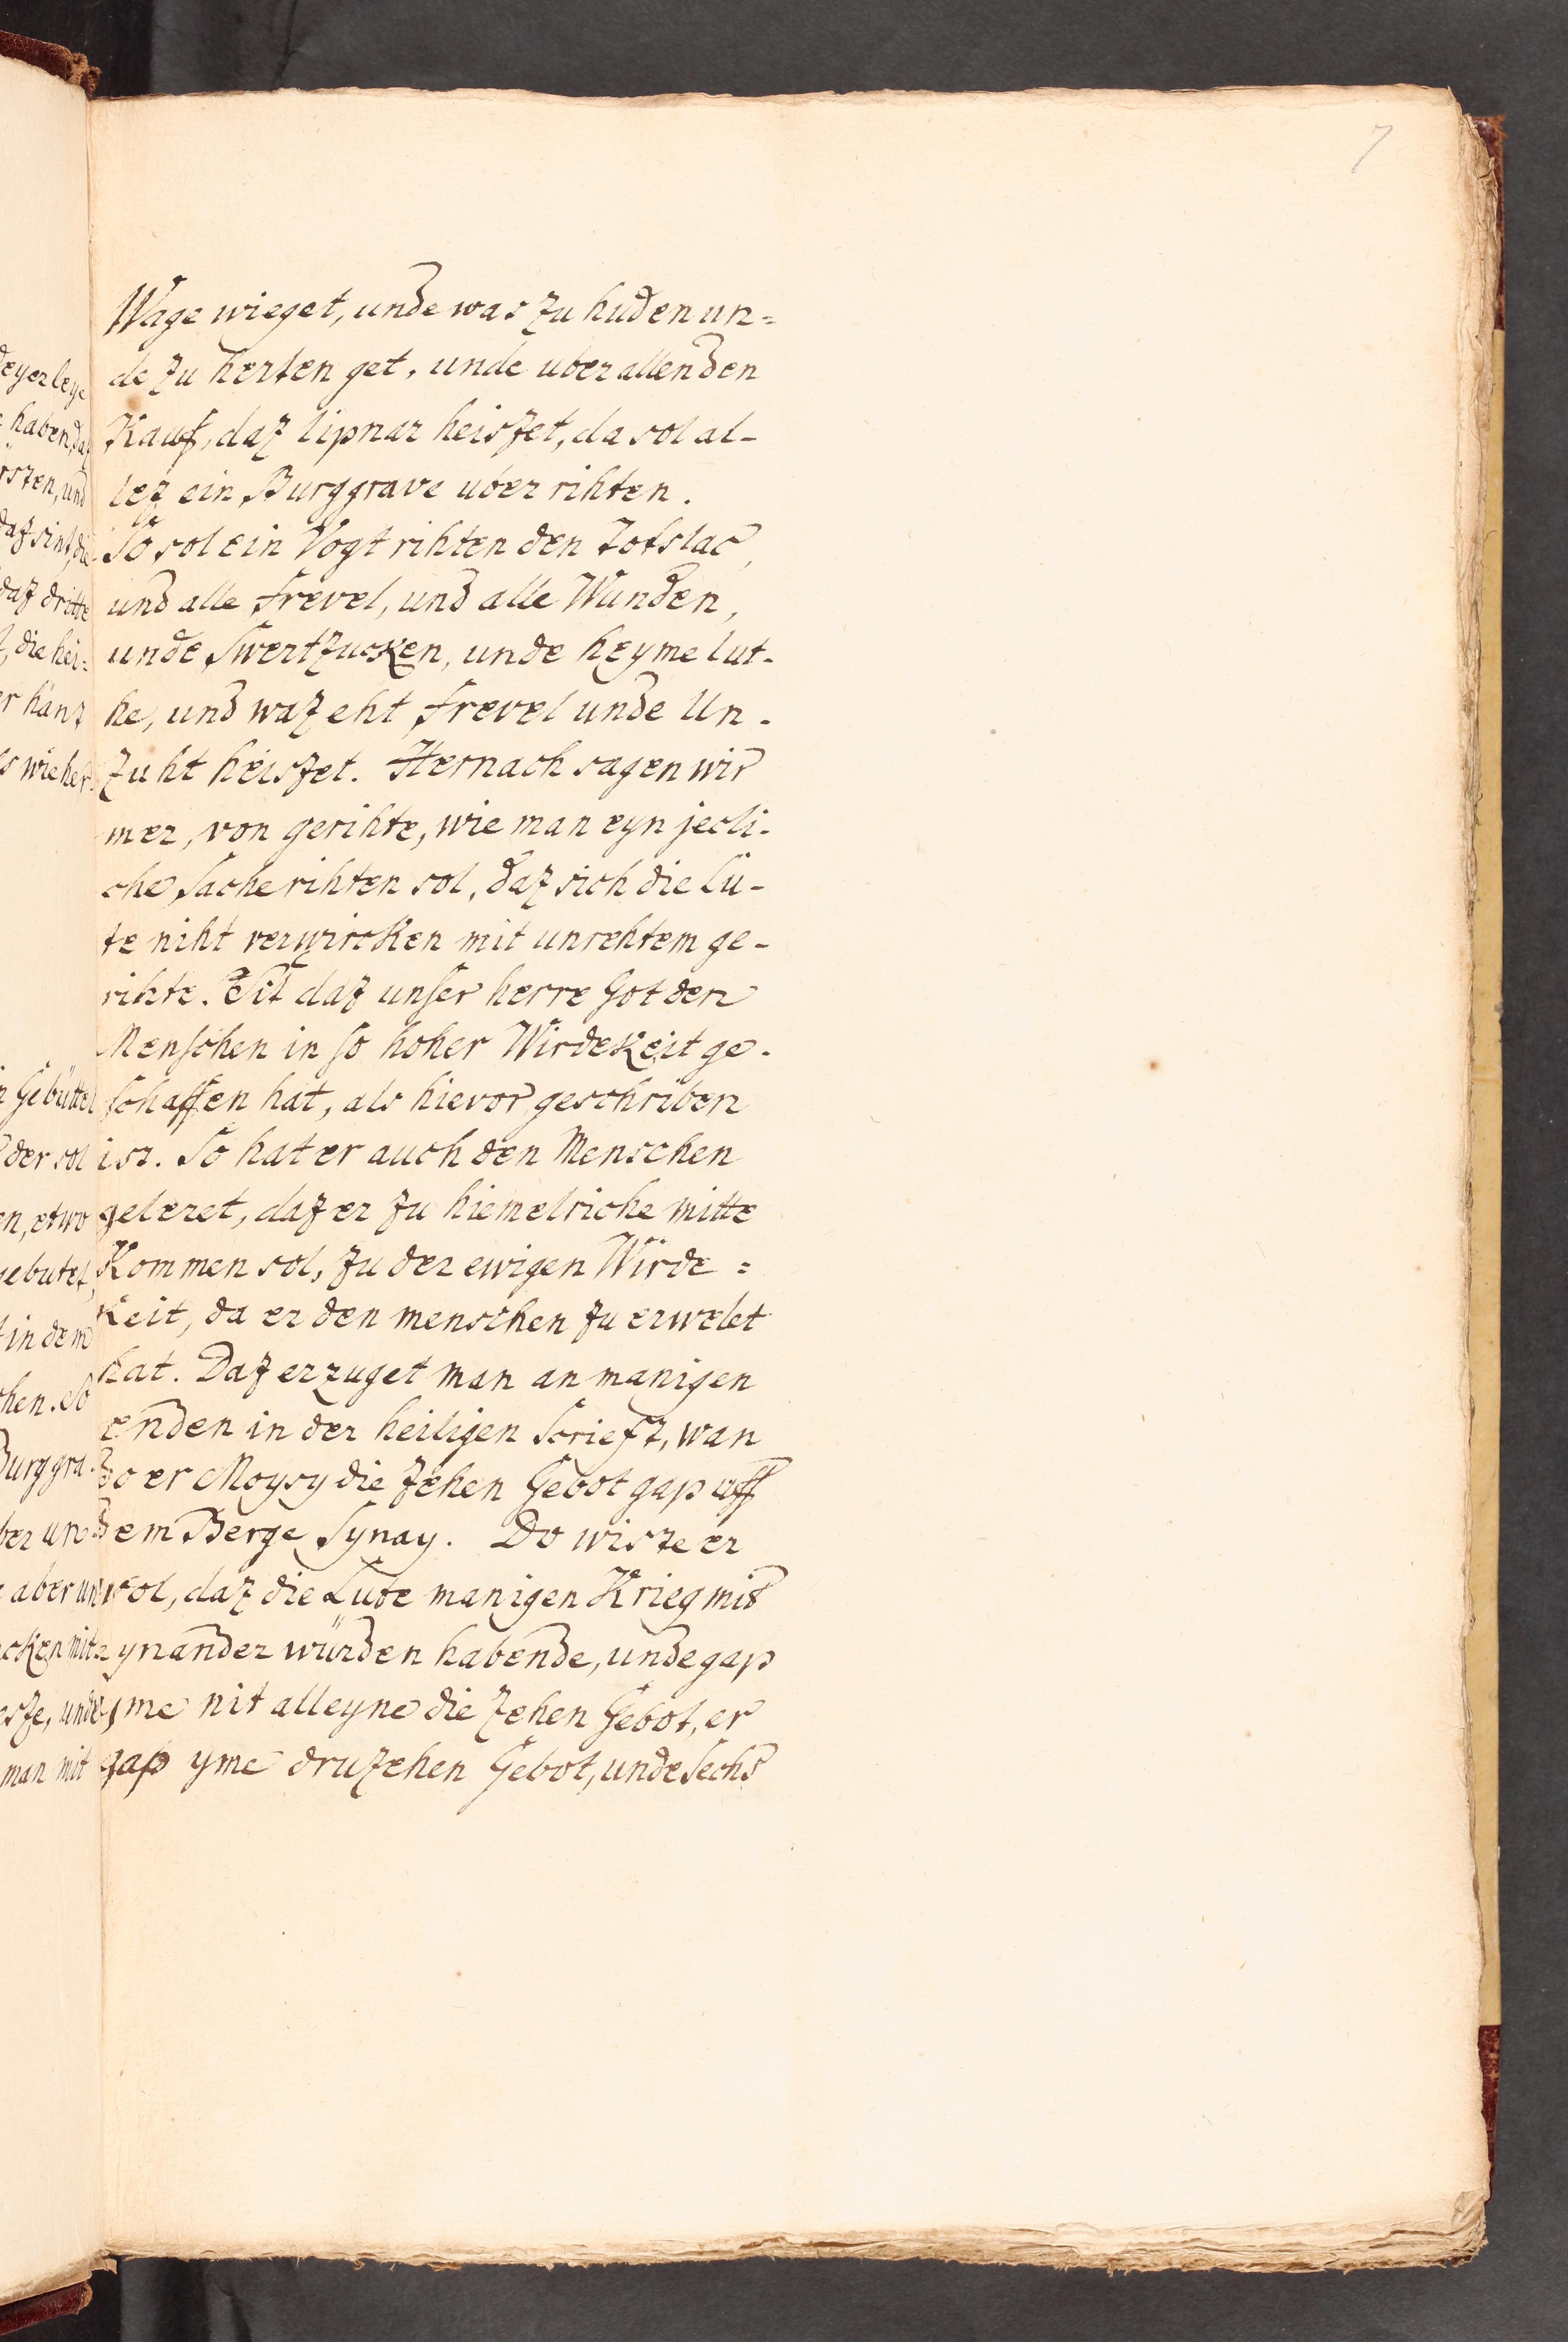 7
Wage wieget, unde was zu huden un=
de zu herten get, unde uber allen den
Kauf, daz lipnar heiszet, da sol al-
lez ein Burggrave uber rihten.
So sol ein Vogt rihten den totslac,
und alle frevel, und alle Wunden,
unde Swertzucken, unde heyme lut-
he, und waz eht frevel unde Un-
zuht heiszet. Hernach sagen wir
mer, von gerihte, wie man eyn jecli-
che Sache rihten sol, daz sich die Lu-
te niht verwircken mit unrehtem ge-
rihte. Sit daz unser herre Got den
Menschen in so hoher Wirdekeit ge-
schaffen hat, als hievor geschriben
ist. So hat er auch den Menschen
geleret, daz er zu hiemelriche mitte
Kommen sol, zu der ewigen Wirde=
keit, da er den menschen zu erwelet
hat. Daz erzuget man an manigen
enden in der heiligen Scrieft, wan
do er Moysy die zehen Gebot gap uff
dem Berge Synay. Do wiste er
wol, daz die Lute manigen Krieg mit
eynander würden habende, unde gap
yme nit alleyne die zehen Gebot, er
gap yme druzehen Gebot, unde Sechs